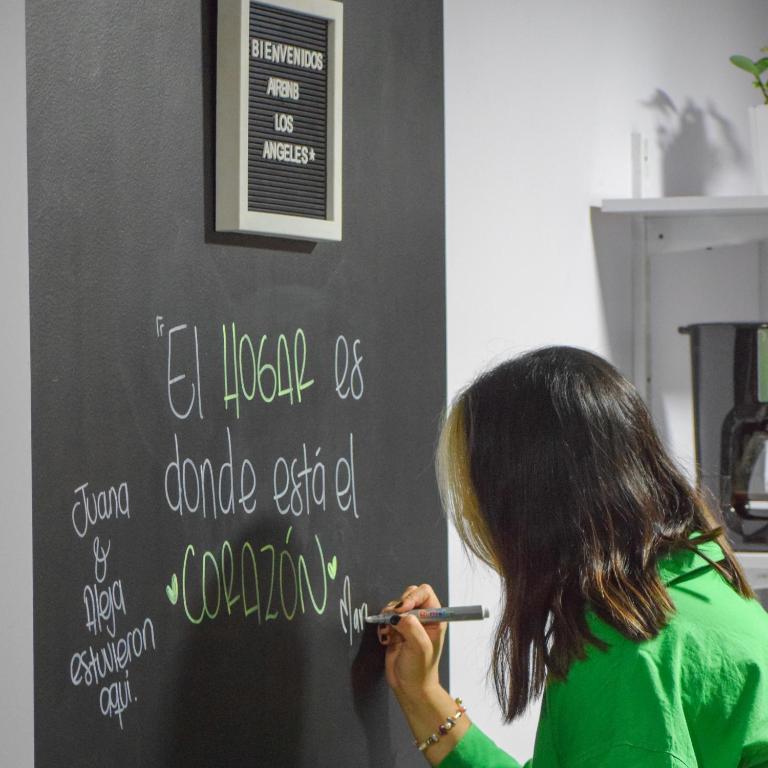 BIENVENIDOS
AIRBNB
LOS
ANGELES*
"El HOGAR es
donde está el
CORAZÓN
Mar
Juana
&
Aleja
estuvieron
aquí.